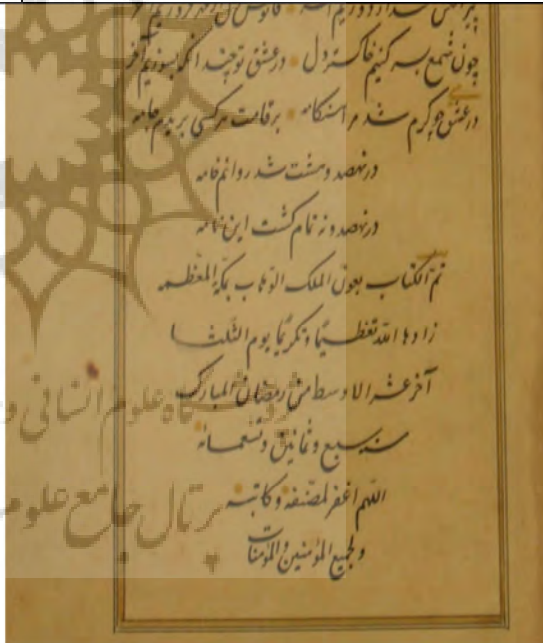 چون شمع بسر کنیم خاکستر دل در عشق تو چند
در عشق چو گرم شد مرا هنگامه بر قامت هر کسی بریدم جامه
در نهصد و هشت شد روانم خامه
در نهصد و نه تمام گشت این نامه
تم الکتاب بعون الملک الوهاب بمکة المعظمه
زادها الله تعظیمًا و تکریمًا یوم الثلثا
آخر عشر الاوسط من رمضان المبارک
سنه سبع و ثمانین و تسعمائه
اللهم اغفر لمصنفه و کاتبه
و لجمیع المؤمنین و المؤمنات
علوم انسانی و
پرتال جامع علوم